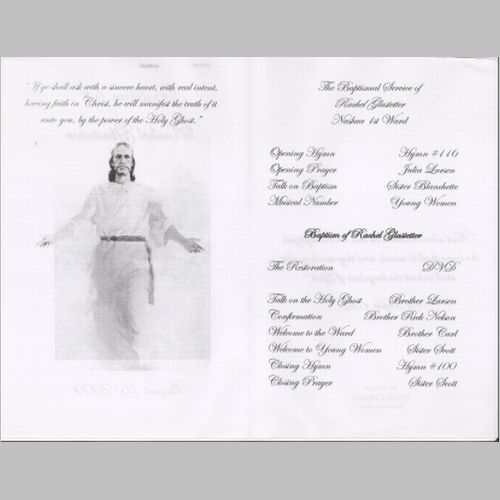 "If ye shall ask with a sincere heart, with real intent,
having faith in Christ, he will manifest the truth of it
unto you, by the power of the Holy Ghost."
The Baptismal Service of
Rachel Glastetter
Nashua 1st Ward
Opening Hymn Hymn #116
Opening Prayer Julia Larsen
Talk on Baptism Sister Blanchette
Musical Number Young Women
Baptism of Rachel Glastetter
The Restoration DVD
Talk on the Holy Ghost Brother Larsen
Confirmation Brother Rick Nelson
Welcome to the Ward Brother Carl
Welcome to Young Women Sister Scott
Closing Hymn Hymn #100
Closing Prayer Sister Scott